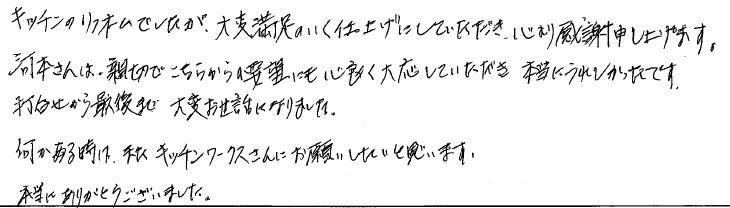 キッチンのリフォームでしたが、大変満足のいく仕上げにしていただき、心より感謝申し上げます。
河本さんは、親切でこちらからの要望にも心良く対応していただき 本当にうれしかったです。
打合せから最後まで 大変お世話になりました。
何かある時は、又 キッチンワークスさんにお願いしたいと思います。
本当にありがとうございました。